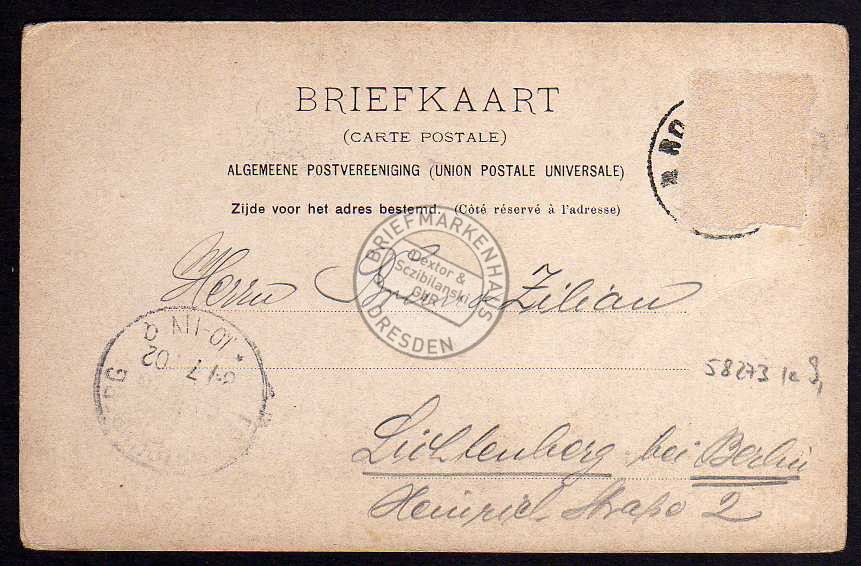 BRIEFKAART
(CARTE POSTALE)
ALGEMEENE POSTVEREENIGING (UNION POSTALE UNIVERSALE)
Zijde voor het adres bestemd. (Côté réservé à l'adresse)
BRIEFMARKENHAUS
Dextor &
Sczibilanski
GbR
DRESDEN
Herrn Zilian
58273
Lichtenberg bei Berlin
Heinrich Straße 2
* 10-11 N
7 02